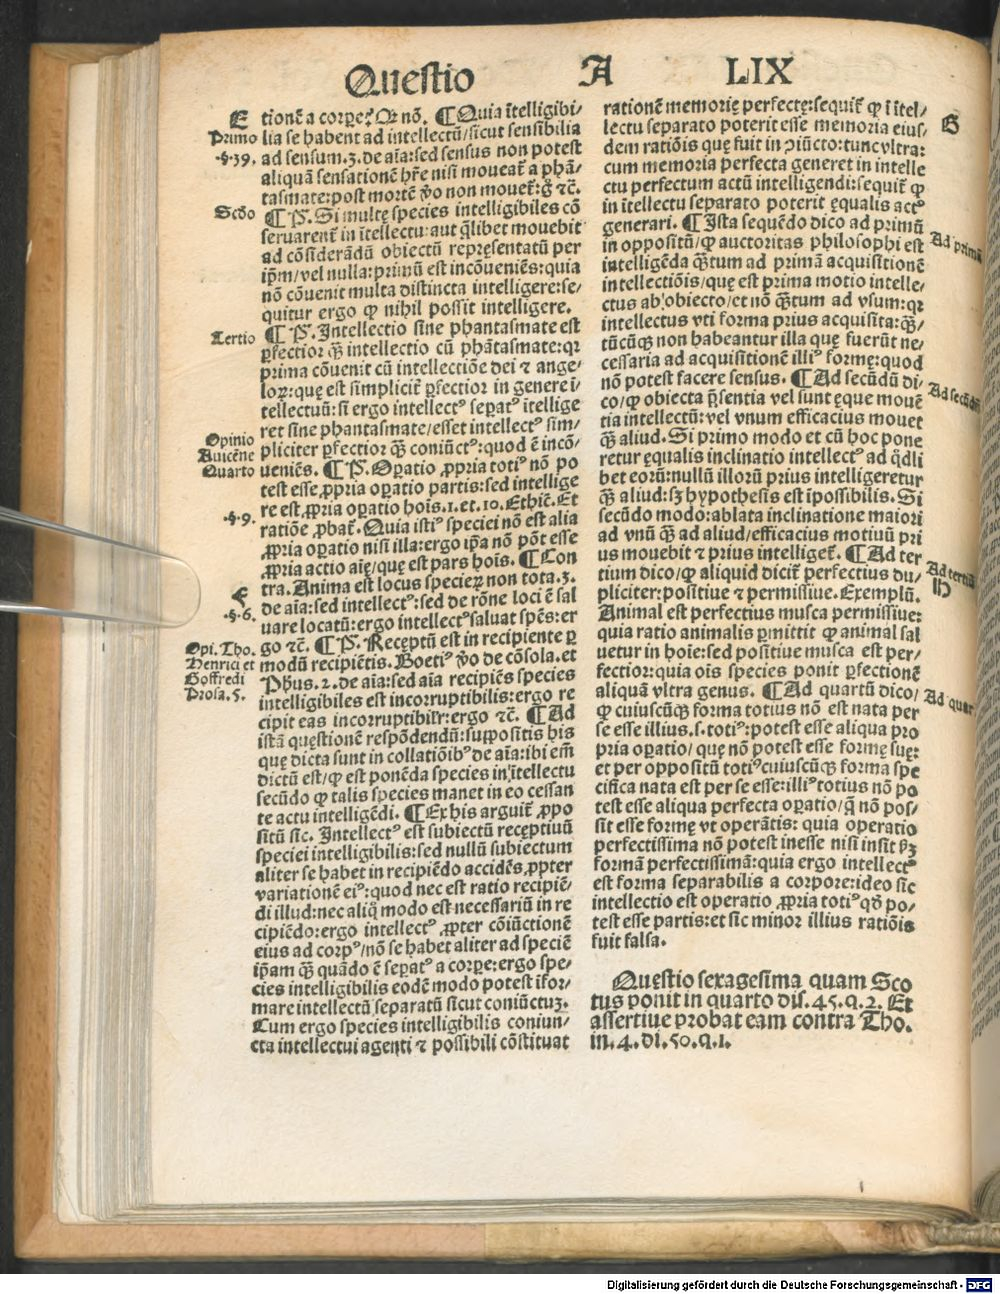 Questio A LIX
E
Primo
.§.39.
Scd̄o
Tertio
Opinio
Auicēne
Quarto
.§.9.
F
.§.6.
Opi. Tho.
Henrici et
Goffredi
Prosa. 5.
tionē a corꝑe: Qꝛ nō. ¶ Quia ītelligibi/
lia se habent ad intellectū/sicut sensibilia
ad sensum.3. de aīa: sed sensus non potest
aliquā sensationē hr̄e nisi moueat̄ a phā/
tasmate: post mortē ꝟo non mouet̄: g̊ ⁊c̄.
¶ P̄. Si multę species intelligibiles cō
seruarent̄ in ītellectu: aut q̄libet mouebit
ad cōsiderādū obiectū repręsentatū per
ip̄m/vel nulla: primū est incōueniēs: quia
nō cōuenit multa distincta intelligere: se/
quitur ergo ꝙ nihil possit intelligere.
¶ P̄. Intellectio sine phantasmate est
ꝑfectior q̄ꝫ intellectio cū phātasmate: qꝛ
prima cōuenit cū intellectiōe dei ⁊ ange/
loꝝ: que est simplicit̄ ꝑfectior in genere i/
tellectuū: si ergo intellectꝰ sepatꝰ ītellige
ret sine phantasmate/esset intellectꝰ sim/
pliciter ꝑfectior q̄ꝫ coniūctꝰ: quod ē incō/
ueniēs. ¶ P̄. Oꝑatio ꝓpria totiꝰ nō po
test esse ꝓpria oꝑatio partis: sed intellige
re est ꝓpria oꝑatio hoīs.1. et. 10. Ethic̄. Et
ratiōe ꝓbat̄. Quia istiꝰ speciei nō est alia
ꝓpria oꝑatio nisi illa: ergo ip̄a nō pōt esse
ꝓpria actio aię/quę est pars hoīs. ¶ Con
tra. Anima est locus specieꝝ non tota. 3.
de aīa: sed intellectꝰ: sed de rōne loci ē sal
uare locatū: ergo intellectꝰ saluat spēs: er
go ⁊c̄. ¶ P̄. Receptū est in recipiente ꝑ
modū recipiētis. Boetiꝰ ꝟo de cōsola. et
Phus. 2. de aīa: sed aīa recipiēs species
intelligibiles est incorruptibilis: ergo re
cipit eas incorruptibilr̄: ergo ⁊c̄. ¶ Ad
istā quęstionē respōdendū: suppositis his
quę dicta sunt in collatiōibꝰ de aīa: ibi em̄
dictū est/ꝙ est ponēda species in ītellectu
secūdo ꝙ talis species manet in eo cessan
te actu intelligēdi. ¶ Ex his arguit̄ ꝓpo
sitū sic. Intellectꝰ est subiectū receptiuū
speciei intelligibilis: sed nullū subiectum
aliter se habet in recipiēdo accidēs ꝓpter
variationē eiꝰ: quod nec est ratio recipiē/
di illud: nec aliq̊ modo est necessariū in re
cipiēdo: ergo intellectꝰ ꝓpter cōiūctionē
eius ad corpꝰ/nō se habet aliter ad speciē
ip̄am q̄ꝫ quādo ē sepatꝰ a corꝑe: ergo spe/
cies intelligibilis eodē modo potest īfor/
mare intellectū separatū sicut coniūctuꝫ.
Cum ergo species intelligibilis coniun/
cta intellectui agenti ⁊ possibili cōstituat
rationē memorię perfectę: sequit̄ ꝙ ī ītel/
lectu separato poterit esse memoria eius/
dem ratiōis quę fuit in ꝯiūcto: tunc vltra:
cum memoria perfecta generet in intelle
ctu perfectum actū intelligendi: sequit̄ ꝙ
in ītellectu separato poterit ęqualis actꝰ
generari. ¶ Ista sequēdo dico ad primū
in oppositū/ꝙ auctoritas philosophi est
intelligēda q̄ꝫtum ad primā acquisitionē
intellectiōis/quę est prima motio intelle/
ctus ab obiecto/et nō q̄ꝫtum ad vsum: qꝛ
intellectus vti forma prius acquisita: q̄ꝫ/
tūcūqꝫ non habeantur illa quę fuerūt ne/
cessaria ad acquisitionē illiꝰ formę: quod
nō potest facere sensus. ¶ Ad secūdū di/
co/ꝙ obiecta p̄sentia vel sunt ęque mouē
tia intellectū: vel vnum efficacius mouet
q̄ꝫ aliud. Si primo modo et cū hoc pone
retur ęqualis inclinatio intellectꝰ ad q̄dli
bet eorū: nullū illorū prius intelligeretur
q̄ꝫ aliud: sꝫ hypothesis est īpossibilis. Si
secūdo modo: ablata inclinatione maiori
ad vnū q̄ꝫ ad aliud/efficacius motiuū pri
us mouebit ⁊ prius intelliget̄. ¶ Ad ter
tium dico/ꝙ aliquid dicit̄ perfectius du/
pliciter: positiue ⁊ permissiue. Exemplū.
Animal est perfectius musca permissiue:
quia ratio animalis ꝑmittit ꝙ animal sal
uetur in hoīe: sed positiue musca est per/
fectior: quia oīs species ponit ꝑfectionē
aliquā vltra genus. ¶ Ad quartū dico/
ꝙ cuiuscūqꝫ forma totius nō est nata per
se esse illius .s. totiꝰ: potest esse aliqua pro
pria oꝑatio/ quę nō potest esse formę suę:
et per oppositū totiꝰ cuiuscūqꝫ forma spe
cifica nata est per se esse: illiꝰ totius nō po
test esse aliqua perfecta oꝑatio/q̄ nō pos/
sit esse formę vt operātis: quia operatio
perfectissima nō potest inesse nisi insit ẜꝫ
formā perfectissimā: quia ergo intellectꝰ
est forma separabilis a corpore: ideo sic
intellectio est operatio ꝓpria totiꝰ qd̄ po/
test esse partis: et sic minor illius ratiōis
fuit falsa.
Questio sexagesima quam Sco
tus ponit in quarto dis. 45. q. 2. Et
assertiue probat eam contra Tho.
in. 4. di. 50. q. 1.
G
Ad primū
Ad secūdū
Ad tertiū
H
Ad quar
Digitalisierung gefördert durch die Deutsche Forschungsgemeinschaft - DFG